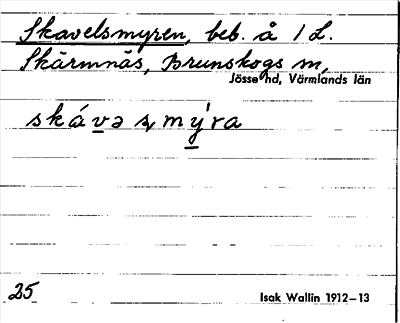 Skavelsmyren, beb. å 1 L.
Skärmnäs, Brunskogs sn,
Jösse hd, Värmlands län
skávə ʂmýra
25
Isak Wallin 1912–13